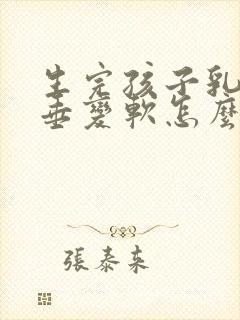 生完孩子乳
垂變軟怎麼
張泰来